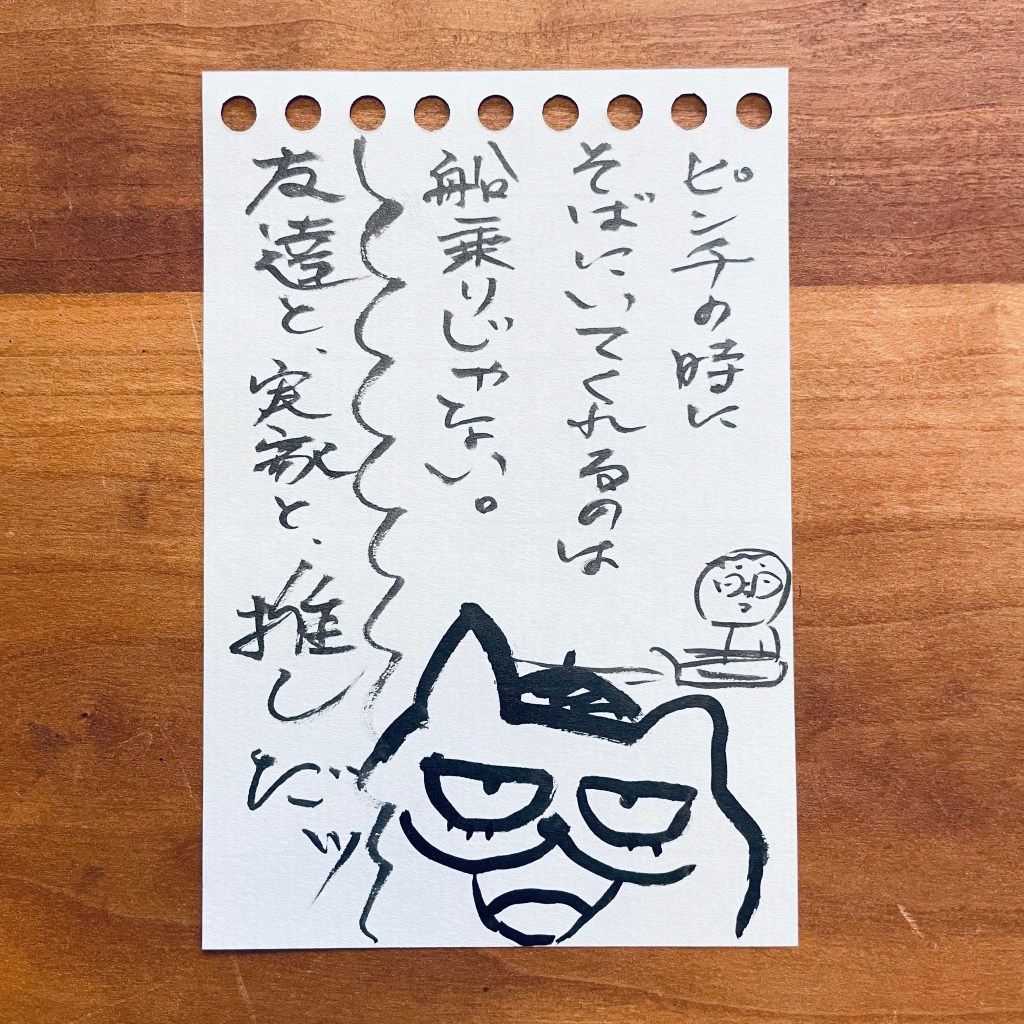 ピンチの時に
そばにいてくれるのは
船乗りじゃない。
友達と、実家と、推し
だッ